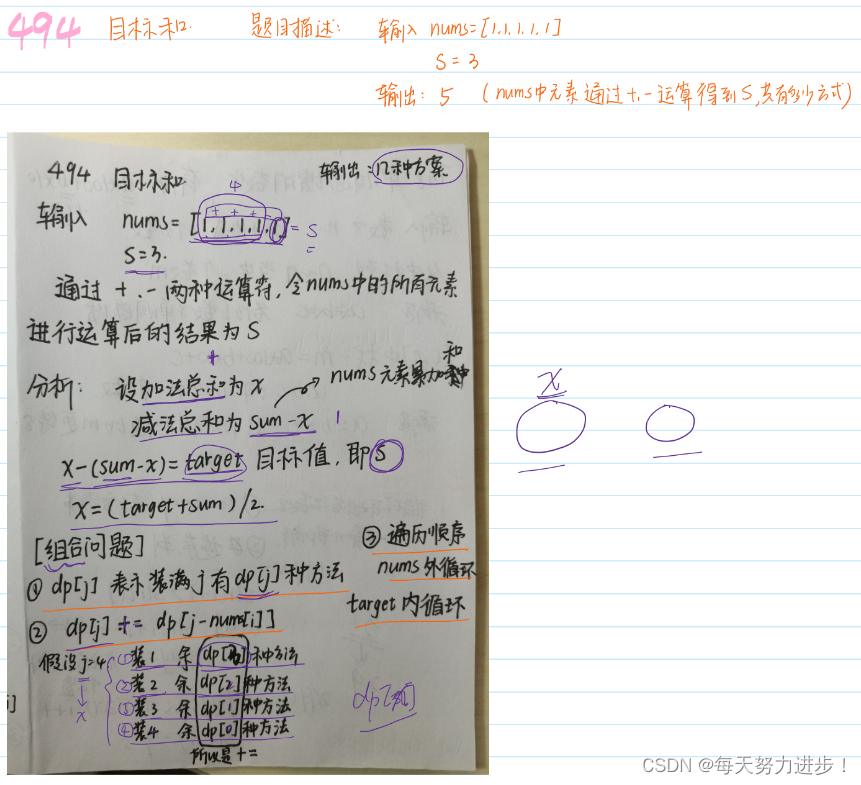 494 目标和. 题目描述: 输入 nums=[1.1.1.1.1]
S = 3
输出: 5 (nums中元素通过+.-运算得到S,共有多少方式)
494 目标和. 输出:几种方案
4
输入 nums= [1.1.1.1.1] = S
S=3.
通过 +.- 两种运算符,令nums中的所有元素
进行运算后的结果为S
分析: 设加法总和为x → nums元素累加和
减法总和为sum-x
x-(sum-x)= target 目标值,即S
x=(target+sum)/2.
[组合问题]
① dp[j] 表示装满j有dp[j]种方法
② dp[j] += dp[j-nums[i]]
③ 遍历顺序
nums外循环
target内循环
假设j=4
x
①装1 余 dp[3]种方法
②装2 余 dp[2]种方法
③装3 余 dp[1]种方法
④装4 余 dp[0]种方法
所以是+=
x
CSDN @每天努力进步!